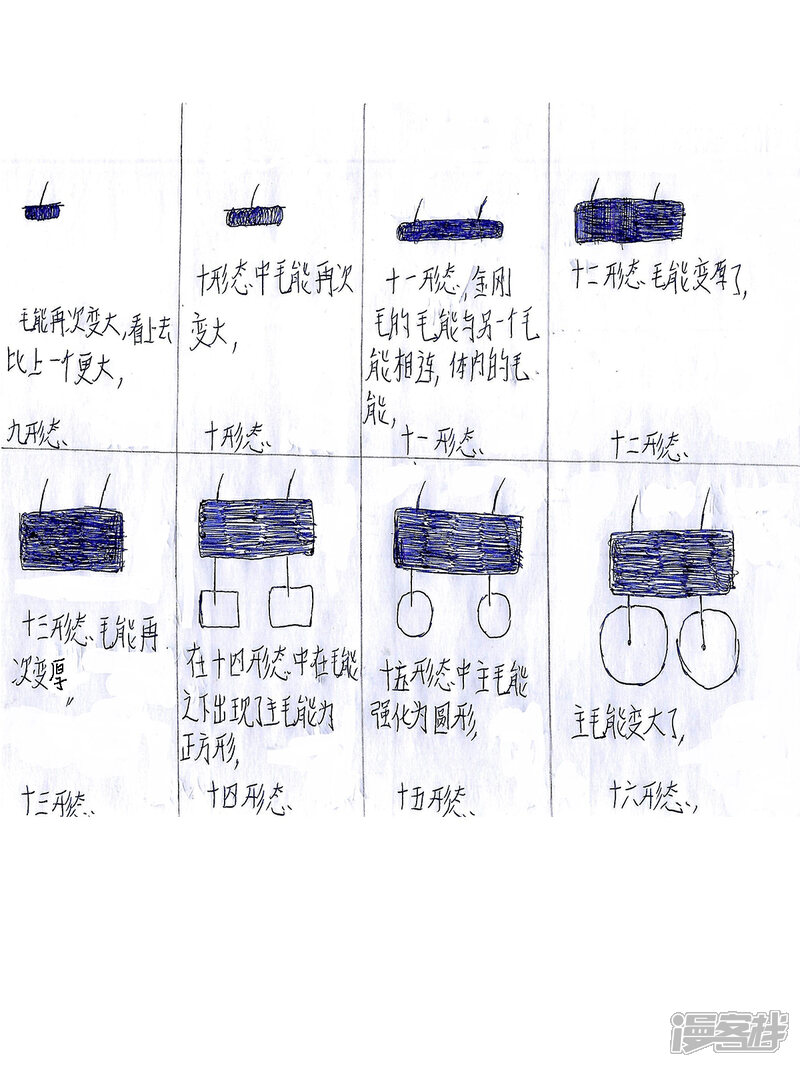 毛能再次变大,看上去
比上一个更大,
九形态、
十形态中毛能再次
变大,
十形态、
十一形态,金刚
毛的毛能与另一个毛
能相连,体内的毛
能,
十一形态、
十二形态、毛能变厚了,
十二形态、
十三形态、毛能再
次变厚"
十三形态、
在十四形态中在毛能
之下出现了主毛能为
正方形,
十四形态、
十五形态中主毛能
强化为圆形,
十五形态、
主毛能变大了,
十六形态、,
漫客栈